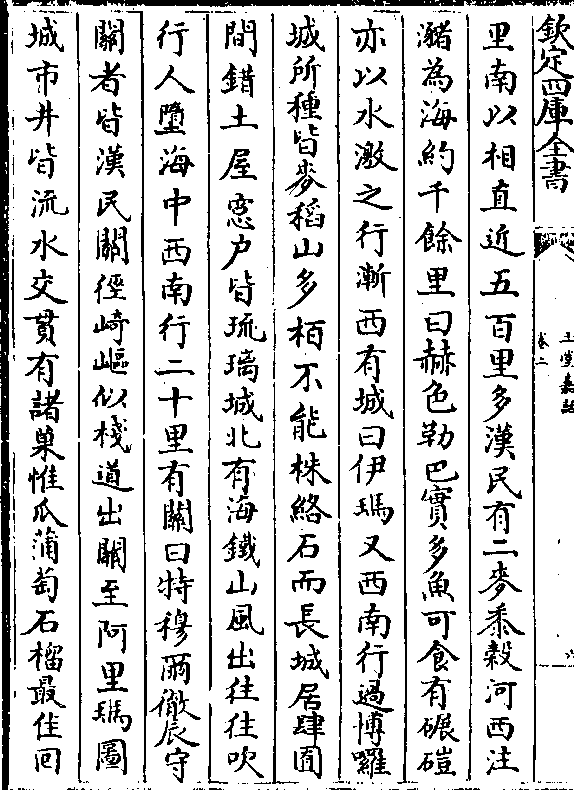 欽定四庫全書
玉堂嘉話
卷二
里南以相直近五百里多漢民有二麥黍穀河西注
瀦為海約千餘里曰赫色勒巴實多魚可食有碾磑
亦以水激之行漸西有城曰伊瑪又西南行過博囉
城所種皆麥稻山多栢不能株絡石而長城居肆囿
間錯土屋窻户皆琉璃城北有海鐵山風出往往吹
行人墮海中西南行二十里有關曰特穆爾徹辰守
關者皆漢民關徑崎嶇似棧道出關至阿里瑪圖
城市井皆流水交貫有諸果惟瓜蒲萄石榴最佳回